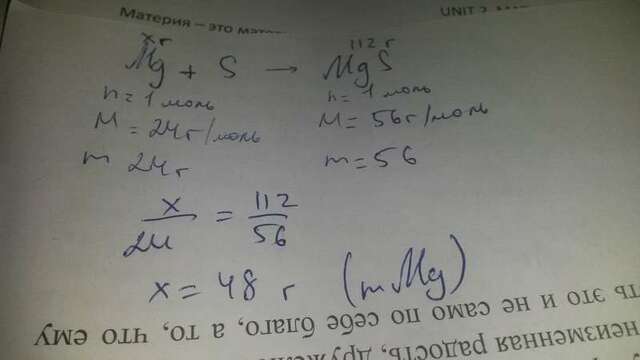 Материя – это
UNIT 2
x г
112 г
Mg + S → MgS
n = 1 моль
n = 1 моль
M = 24 г/моль
M = 56 г/моль
m 24 г
m = 56
x/24 = 112/56
x = 48 г (m Mg)
ть это и не само по себе благо, а то, что ему
неизменная радость, друже